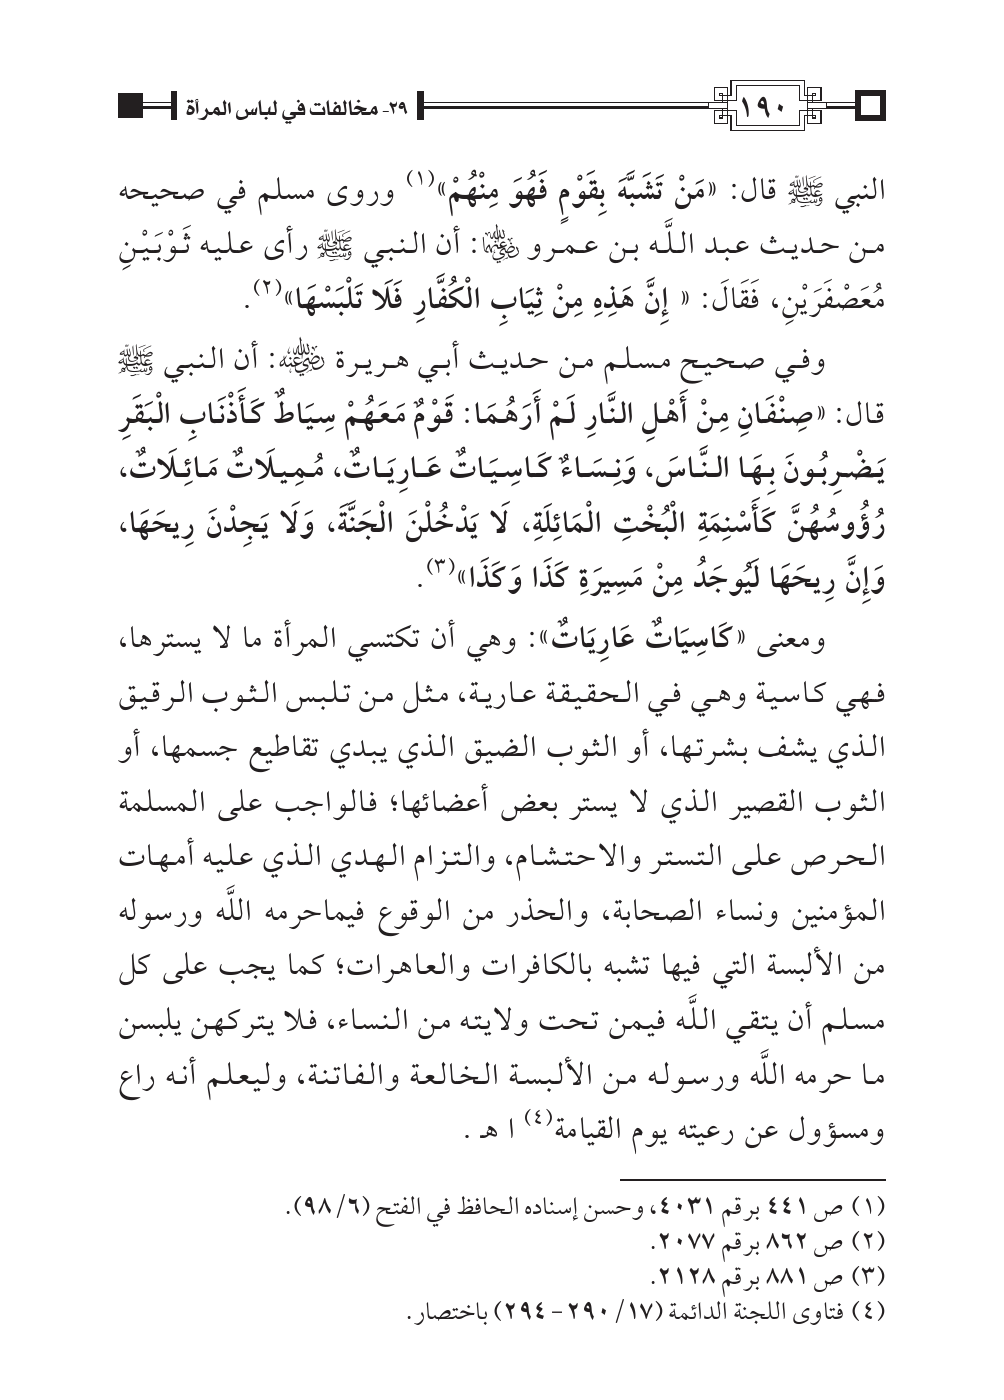 ١٩٠
٢٩- مخالفات في لباس المرأة
النبي ﷺ قال: «مَنْ تَشَبَّهَ بِقَوْمٍ فَهُوَ مِنْهُمْ»(١) وروى مسلم في صحيحه
من حديث عبد اللَّه بن عمرو رضي الله عنهما: أن النبي ﷺ رأى عليه ثَوْبَيْنِ
مُعَصْفَرَيْنِ، فَقَالَ: « إِنَّ هَذِهِ مِنْ ثِيَابِ الْكُفَّارِ فَلَا تَلْبَسْهَا»(٢).
وفي صحيح مسلم من حديث أبي هريرة رضي الله عنه: أن النبي ﷺ
قال: «صِنْفَانِ مِنْ أَهْلِ النَّارِ لَمْ أَرَهُمَا: قَوْمٌ مَعَهُمْ سِيَاطٌ كَأَذْنَابِ الْبَقَرِ
يَضْرِبُونَ بِهَا النَّاسَ، وَنِسَاءٌ كَاسِيَاتٌ عَارِيَاتٌ، مُمِيلَاتٌ مَائِلَاتٌ،
رُؤُوسُهُنَّ كَأَسْنِمَةِ الْبُخْتِ الْمَائِلَةِ، لَا يَدْخُلْنَ الْجَنَّةَ، وَلَا يَجِدْنَ رِيحَهَا،
وَإِنَّ رِيحَهَا لَيُوجَدُ مِنْ مَسِيرَةِ كَذَا وَكَذَا»(٣).
ومعنى «كَاسِيَاتٌ عَارِيَاتٌ»: وهي أن تكتسي المرأة ما لا يسترها،
فهي كاسية وهي في الحقيقة عارية، مثل من تلبس الثوب الرقيق
الذي يشف بشرتها، أو الثوب الضيق الذي يبدي تقاطيع جسمها، أو
الثوب القصير الذي لا يستر بعض أعضائها؛ فالواجب على المسلمة
الحرص على التستر والاحتشام، والتزام الهدي الذي عليه أمهات
المؤمنين ونساء الصحابة، والحذر من الوقوع فيماحرمه اللَّه ورسوله
من الألبسة التي فيها تشبه بالكافرات والعاهرات؛ كما يجب على كل
مسلم أن يتقي اللَّه فيمن تحت ولايته من النساء، فلا يتركهن يلبسن
ما حرمه اللَّه ورسوله من الألبسة الخالعة والفاتنة، وليعلم أنه راع
ومسؤول عن رعيته يوم القيامة(٤) ا هـ .
(١) ص ٤٤١ برقم ٤٠٣١، وحسن إسناده الحافظ في الفتح (٩٨/٦).
(٢) ص ٨٦٢ برقم ٢٠٧٧.
(٣) ص ٨٨١ برقم ٢١٢٨.
(٤) فتاوى اللجنة الدائمة (١٧/ ٢٩٠ - ٢٩٤) باختصار.